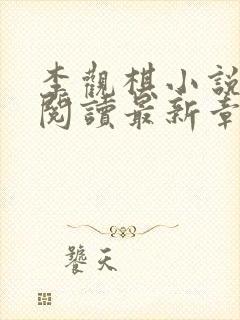 李觀棋小說
閱讀最新章
饕天